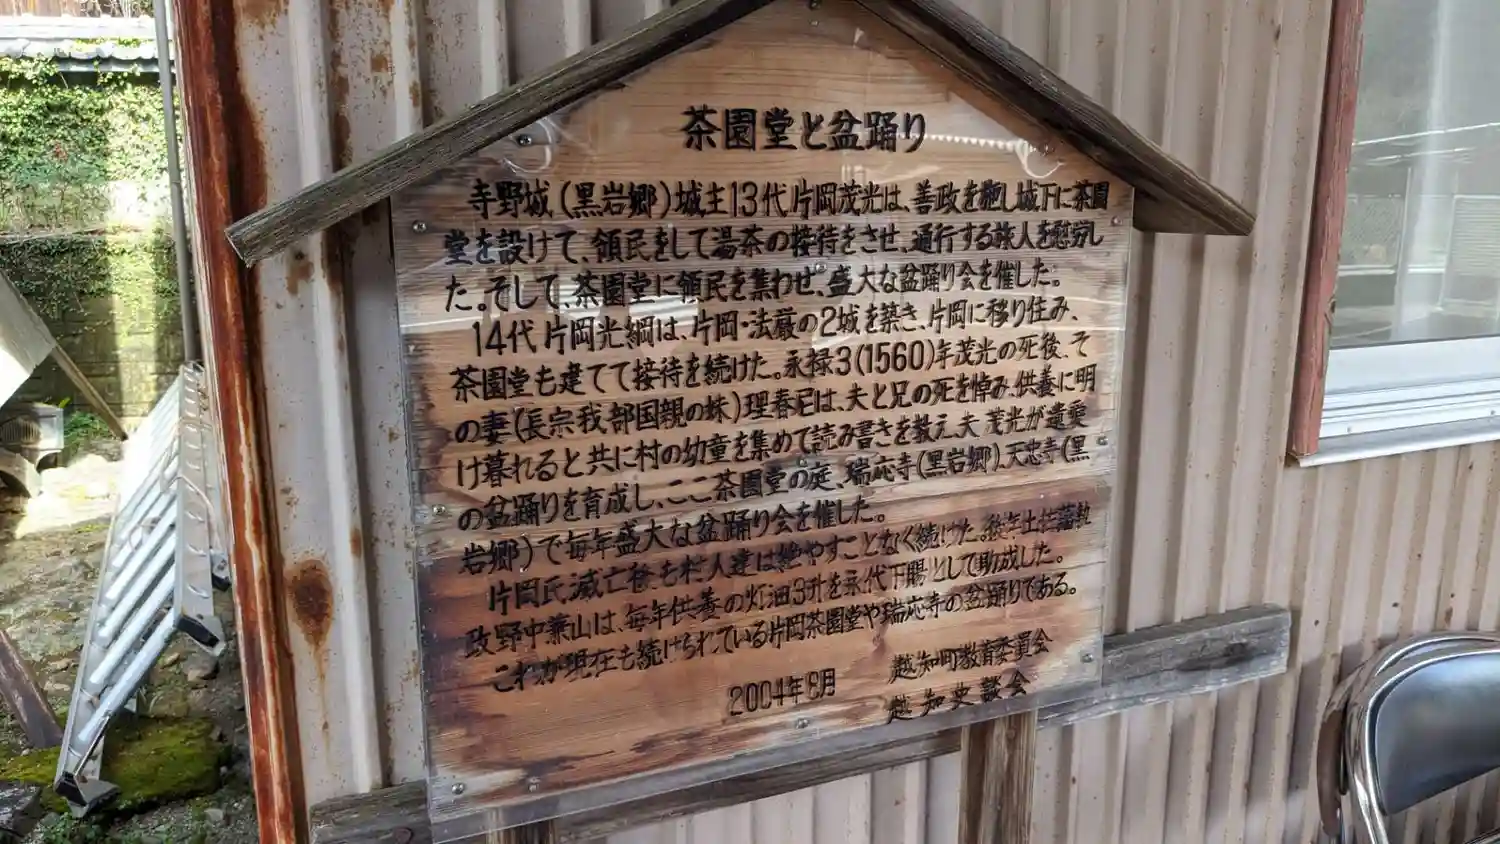 茶園堂と盆踊り
寺野城(黒岩郷)城主13代片岡茂光は、善政を施し城下に茶園
堂を設けて、領民をして湯茶の接待をさせ、通行する旅人を慰労し
た。そして、茶園堂に領民を集わせ、盛大な盆踊り会を催した。
14代片岡光綱は、片岡・法厳の2城を築き、片岡に移り住み、
茶園堂も建てて接待を続けた。永禄3(1560)年茂光の死後、そ
の妻(長宗我部国親の妹)理春尼は、夫と兄の死を悼み、供養に明
け暮れると共に村の幼童を集めて読み書きを教え夫茂光が遺愛
の盆踊りを育成し、ここ茶園堂の庭、瑞応寺(黒岩郷)、天忠寺(黒
岩郷)で毎年盛大な盆踊り会を催した。
片岡氏滅亡後も村人達は絶やすことなく続けた。後年土佐藩執
政野中兼山は、毎年供養の灯油3升を永代下賜として助成した。
これが現在も続けられている片岡茶園堂や瑞応寺の盆踊りである。
2004年8月
越知町教育委員会
越知史談会